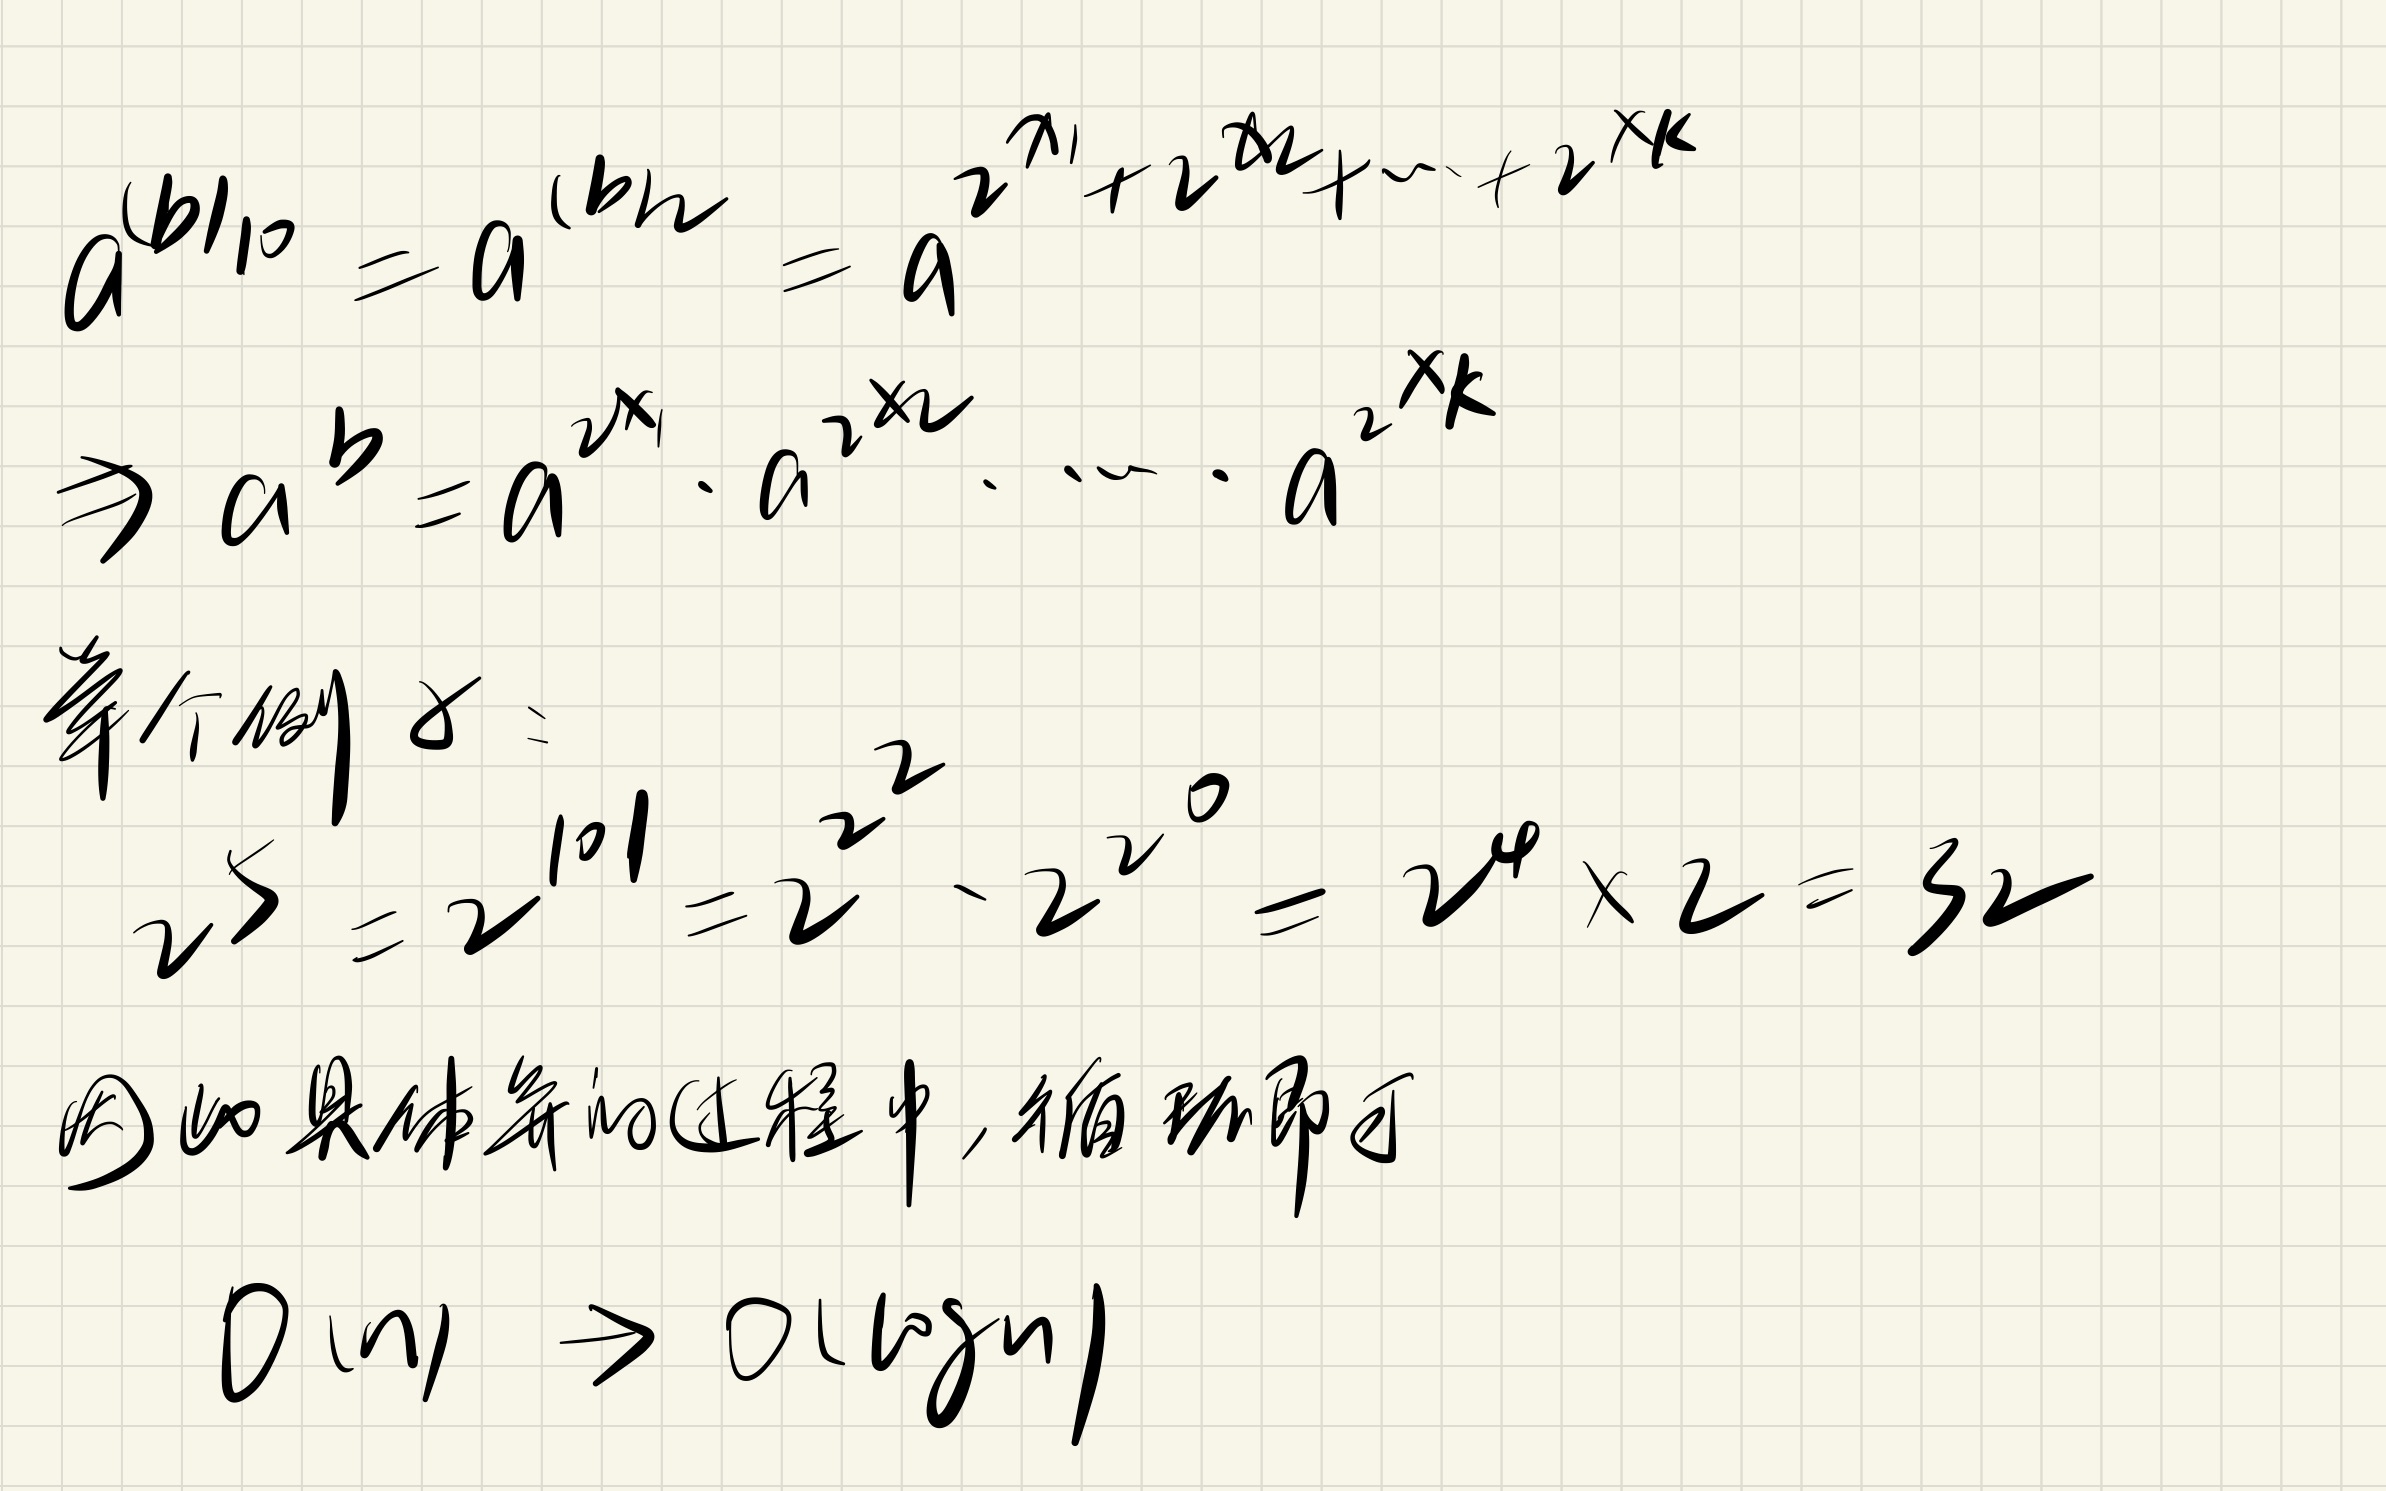 a^{(b)_{10}} = a^{(b)_2} = a^{2^{x_1} + 2^{x_2} + ... + 2^{x_k}}
⇒ a^b = a^{2^{x_1}} · a^{2^{x_2}} · ... · a^{2^{x_k}}
举个例子:
2^5 = 2^{101} = 2^{2^2} · 2^{2^0} = 2^4 × 2 = 32
因如具体算的过程中,循环即可
O(n) → O(logn)